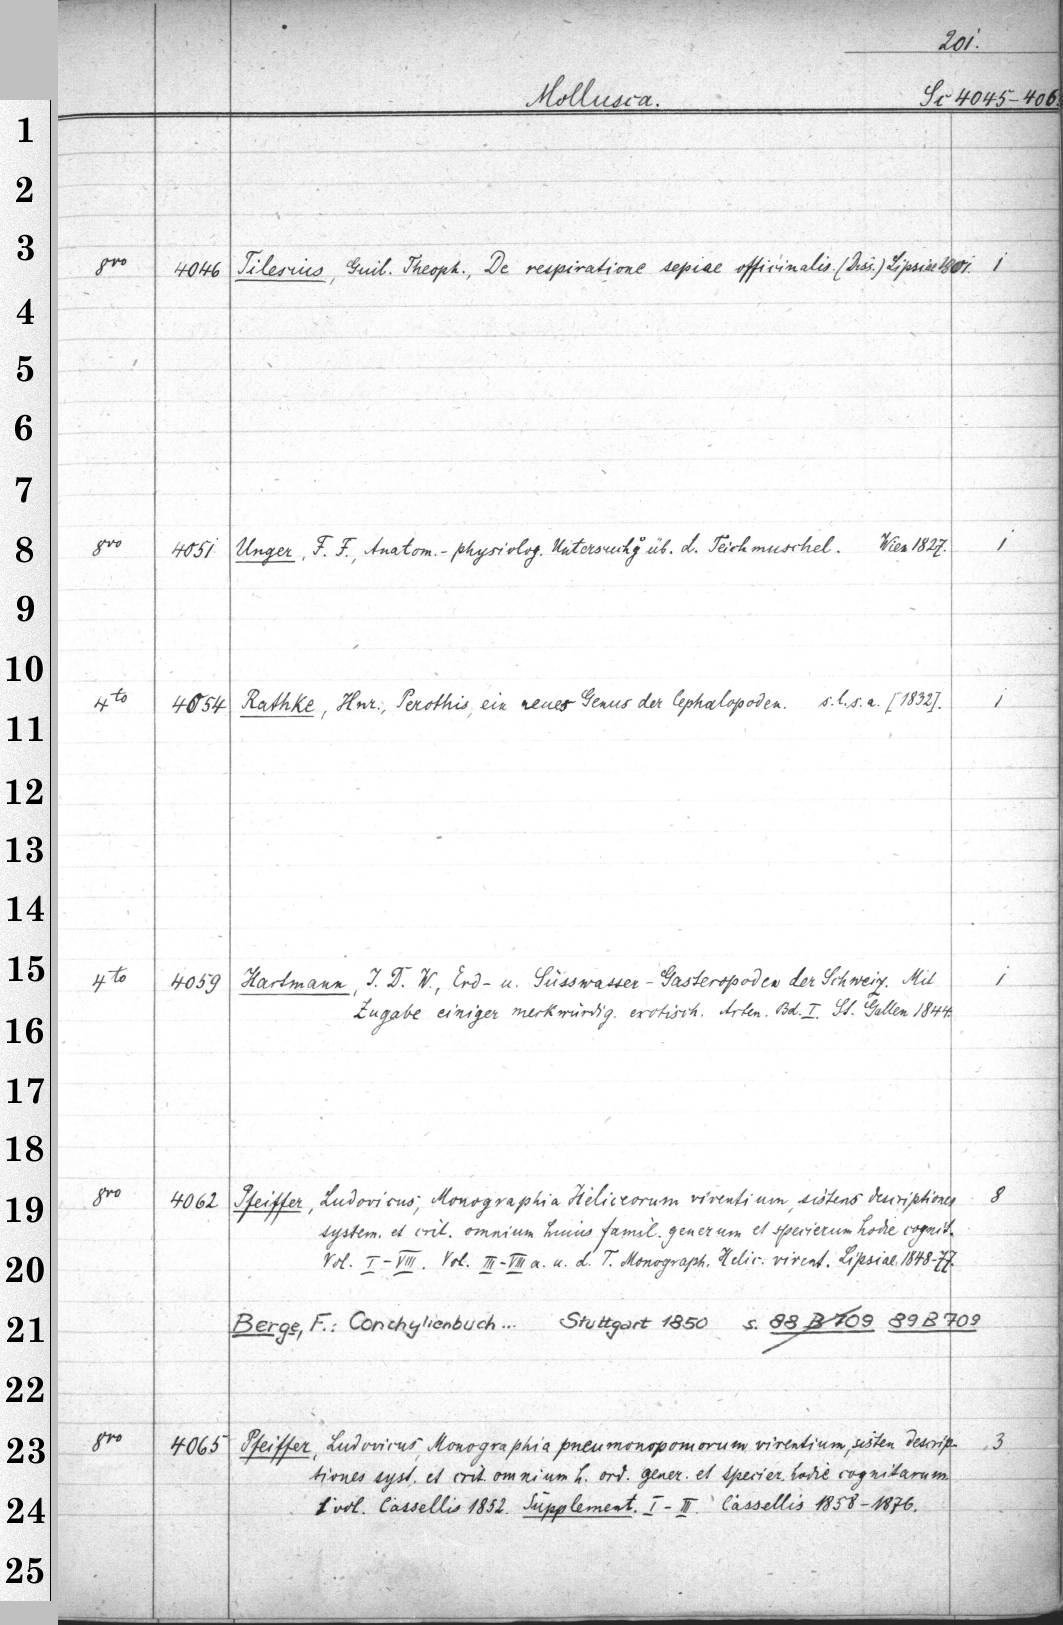 201.
Mollusca. Sc 4045-406
1
2
3
8vo 4046 Tilesius, Guil. Theoph., De respiratione sepiae officinalis. (Diss.) Lipsiae 1801. 1
4
5
6
7
8
8vo 4051 Unger, F. F., Anatom.- physiolog. Untersuchg üb. d. Teichmuschel. Wien 1827. 1
9
10
4to 4054 Rathke, Hnr., Perothis, ein neues Genus der Cephalopoden. s.l.s.a. [1832]. 1
11
12
13
14
15
4to 4059 Hartmann, J. D. W., Erd- u. Süsswasser-Gasteropoden der Schweiz. Mit 1
Zugabe einiger merkwürdig. exotisch. Arten. Bd. I. St. Gallen 1844.
16
17
18
8vo 4062 Pfeiffer, Ludovicus, Monographia Heliceorum viventium, sistens descriptiones 8
19
system. et crit. omnium huius famil. generum et specierum hodie cognit.
Vol. I-VIII. Vol. III-VIII a. u. d. T. Monograph. Helic. vivent. Lipsiae. 1848-77.
20
21
Berge, F.: Conchylienbuch... Stuttgart 1850 s. 88 B 709 89 B 709
22
8vo 4065 Pfeiffer, Ludovicus, Monographia pneumonopomorum viventium, sisten descrip- 3
23
tiones syst. et crit. omnium h. ord. gener. et specier. hodie cognitarum
1 vol. Cassellis 1852. Supplement. I-III. Cassellis 1858-1876.
24
25